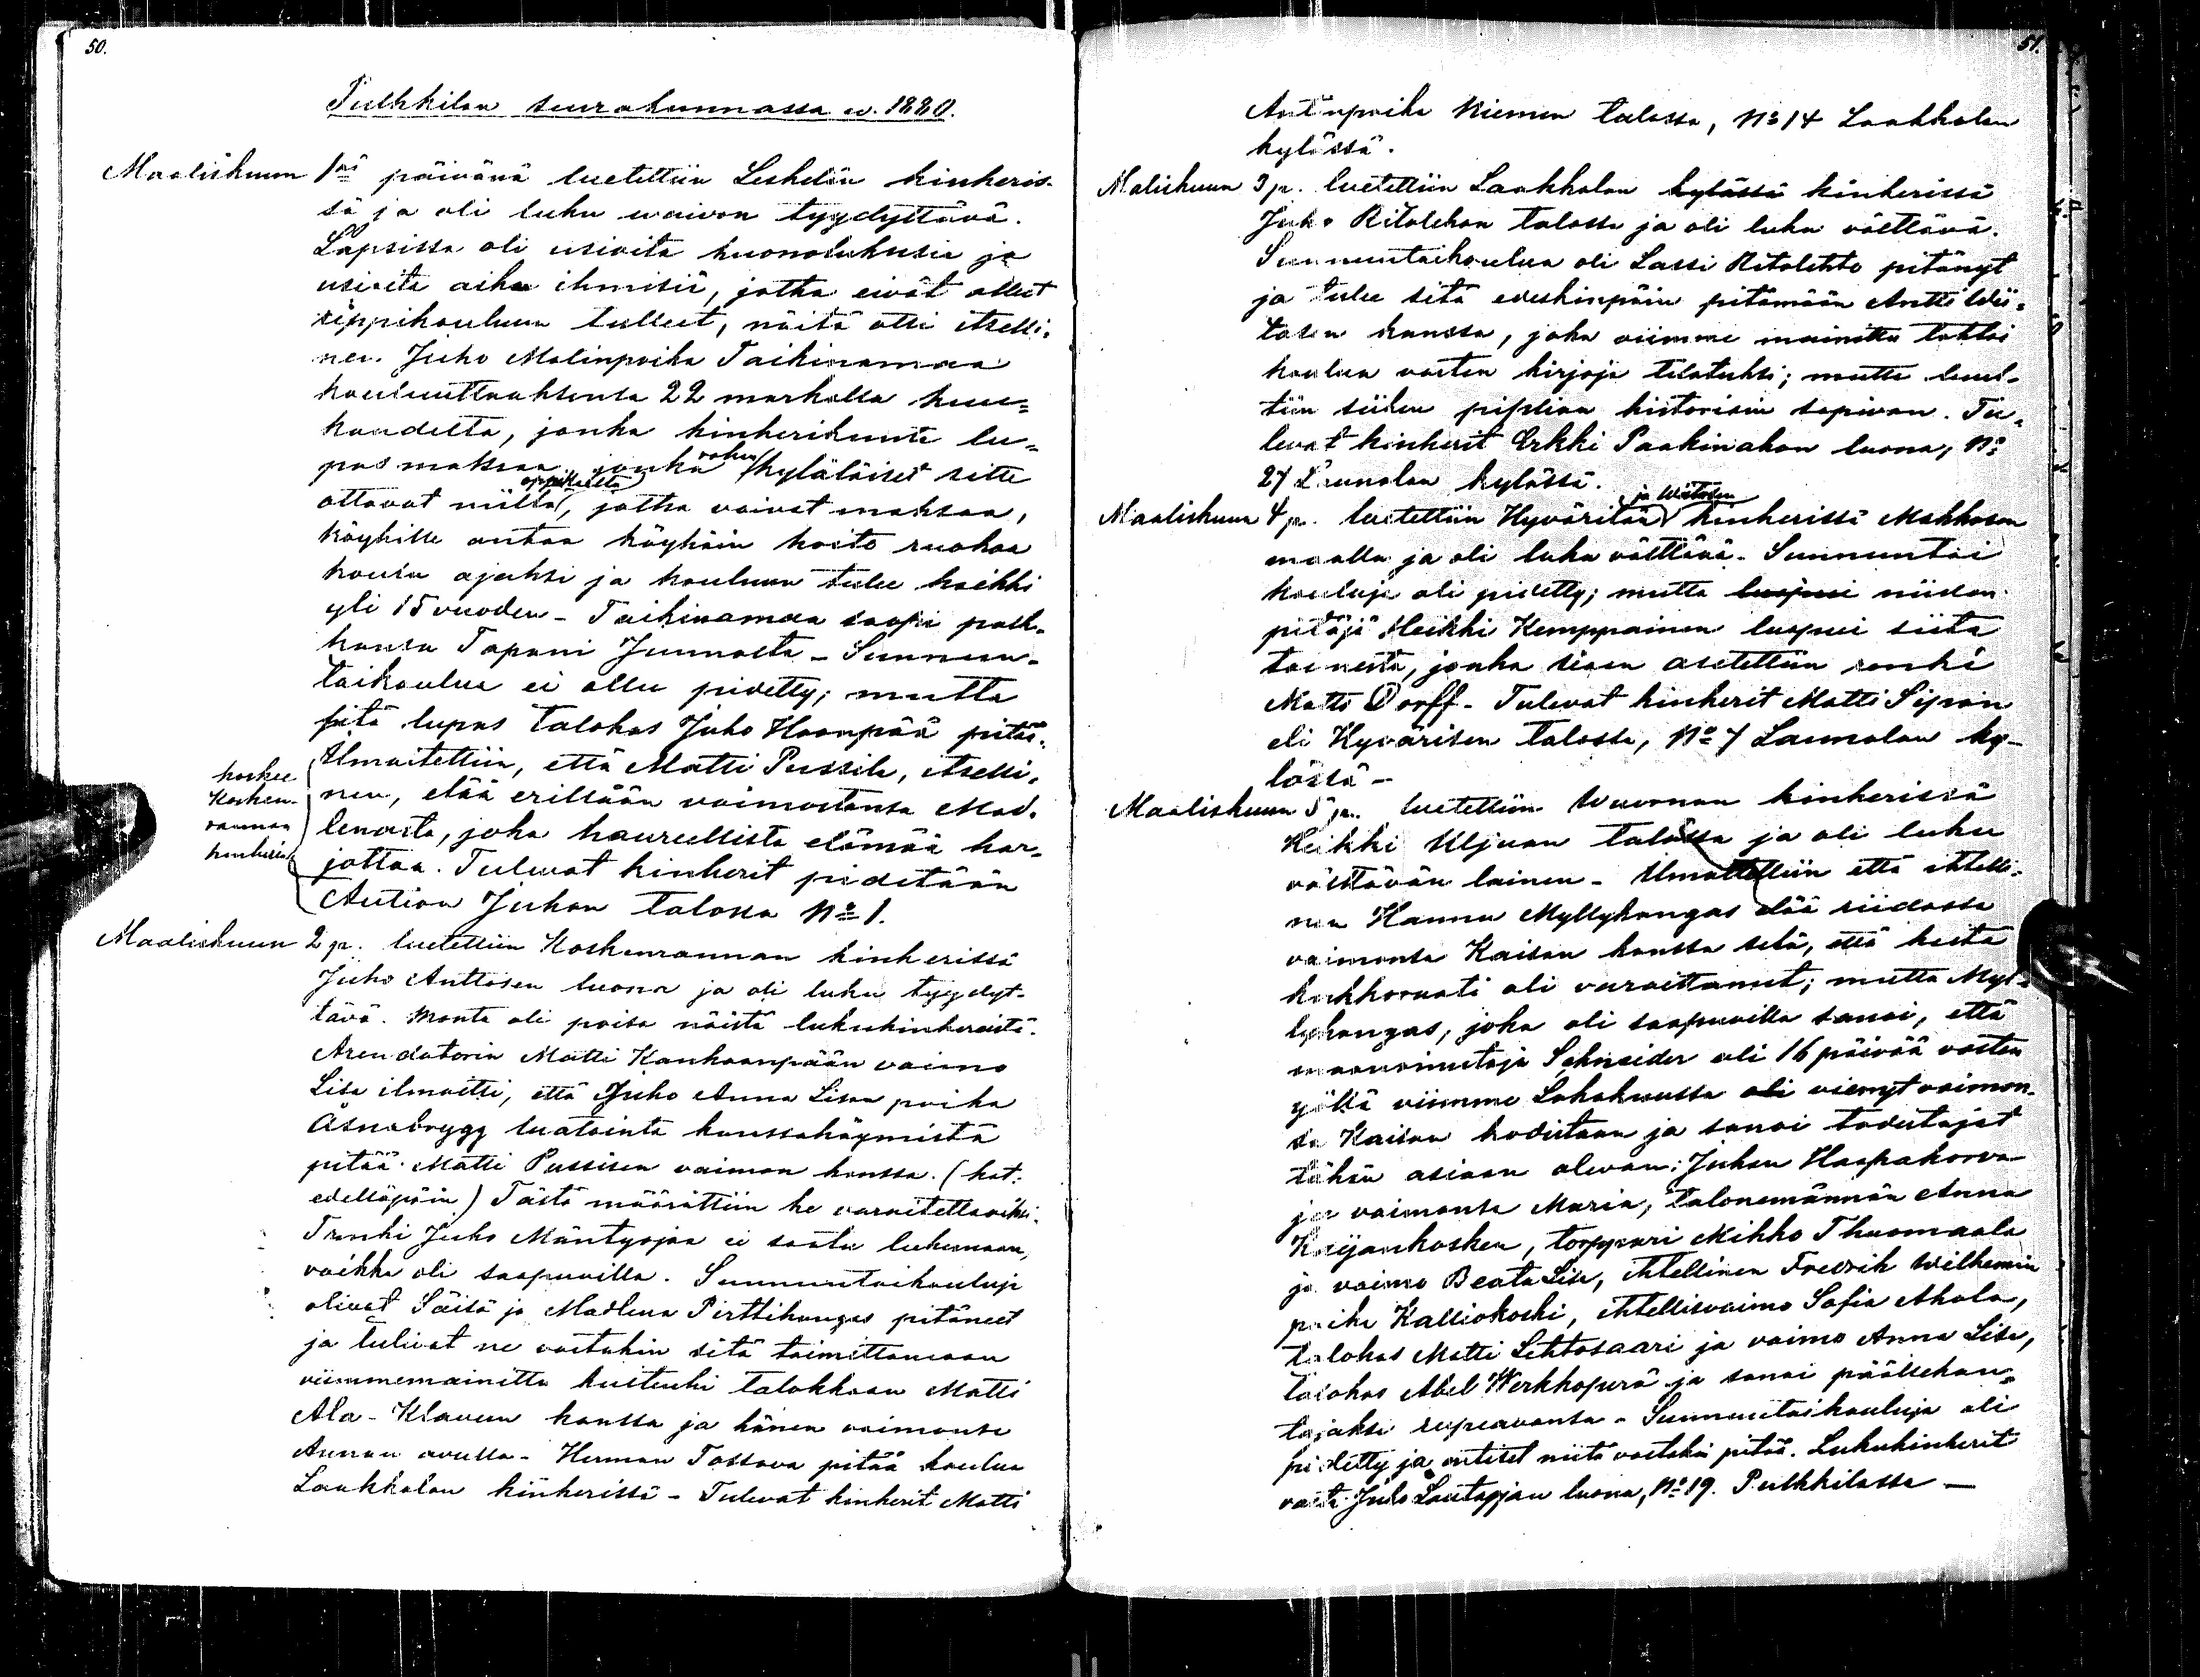 50.
Pulkkilan seurakunnassa w. 1880.
Maaliskuun 1nä päivänä luetettiin Leskelän kinkeris-
sä ja oli luku waivon tyydyttävä.
Lapsissa oli usioita huonolukusia ja
usioita aika ihmisiä, jotka eivät ollut
rippikouluun tulleet, näitä otti itselli-
nen Juho Matinpoika Taikinamaa
kouluuttaaksensa 22 markalla kuu-
kaudelta, jonka kinkerikunta lu-
pas maksaa, jonka rahan kyläläiset sitte
ottavat niiltä oppilailta, jotka voivat maksaa,
köyhille antaa köyhäin hoito ruokaa
koulu ajaksi ja kouluun tulee kaikki
yli 15 vuoden - Taikinamaa saapi palk-
kansa Tapani Junnolta - Sunnun-
taikoulua ei ollu pidetty; mutta
sitä lupas talokas Juho Haanpää pitää.
Ilmoitettiin, että Matti Pussila, itselli-
nen, elää erillään vaimostansa Mad-
lenasta, joka haureellista elämää har-
joittaa. Tulevat kinkerit pidetään
Aution Juhon talossa No 1.
koskee
Kosken-
rannan
kinkeriä
Maaliskuun 2 p. luetettiin Koskenrannan kinkerissä
Juho Anttosen luona ja oli luku tyydyt-
tävä. Monta oli poisa näistä lukukinkereistä.
Arendatorin Matti Kankaanpään vaimo
Lisa ilmoitti, että Juho Anna Lisan poika
Åsnabrygg luatointa kanssakäymistä
pitää Matti Pussisen vaimon kanssa. (kat.
edelläpäin) Tästä määrättiin he varoitettaviksi.
Trenki Juho Mäntyojaa ei saatu lukemaan,
vaikka oli saapuvilla. Sunnuntaikouluja
olivat Säisä ja Madlena Pirttikangas pitäneet
ja tulivat ne vastakin sitä toimittamaan
viimmemainittu kuitenki talokkaan Matti
Ala-Klaven kanssa ja hänen vaimonsa
Annan avulla - Herman Tossava pitää koulua
Laakkolan kinkerissä - Tulevat kinkerit Matti
51.
Antinpoika Niemen talossa, No 14 Laakkolan
kylässä.
Maliskuun 3 p. luetettiin Laakkolan kylässä kinkerissä
Juho Ritolehon talossa ja oli luku välttävä.
Sunnuntaikoulua oli Lassi Ritolehto pitänyt
ja tulee sitä edeskinpäin pitämään Antti Wii-
tasen kanssa, joka viimme mainittu tahtoi
koulua varten kirjoja tilatuksi; mutta luul-
tiin siihen piplian historioin sopivan. Tu-
levat kinkerit Erkki Paakinahon luona, No
27 Launolan kylässä.
Maaliskuun 4 p. luetettiin Hyvärilän ja Wiitasen kinkerissä Makkosen
maalla ja oli luku välttävä. Sunnuntai
kouluja oli pidetty; mutta luopui niiden
pitäjä Heikki Kemppainen luopui siitä
toimesta, jonka siaan asetettiin renki
Matti Dorff - Tulevat kinkerit Matti Sipon
eli Hyvärisen talossa, No 7 Launolan ky-
lässä -
Maaliskuun 5 p. luetettiin Wuornan kinkerissä
Heikki Uljuan talossa ja oli luku
välttävän lainen - Ilmoitettiin että ihtelli-
nen Hannu Myllykangas elää riidassa
vaimonsa Kaisan kanssa sekä, että heitä
kirkkoraati oli varoittanut; mutta Myl-
lykangas, joka oli saapuvilla sanoi, että
Schneider oli 16 päivää vasten
yöllä viimme Lokakuussa oli vienyt vaimon-
sa Kaisan kodistaan ja sanoi todistajat
tähän asiaan olevan: Juhon Haapakorva
ja vaimonsa Maria, talonemännän Anna
torppari Mikko Thuomaala
ja vaimo Beata Lisa, ihtellinen Fredrik Wilhemin
poika Kalliokoski, ihtellisvaimo Sofia Ahola,
talokas Matti Lehtosaari ja vaimo Anna Lisa,
talokas Abel Werkkoperä ja sanoi päällekan-
tajaksi rupeavansa - Sunnuntaikouluja oli
pidetty ja entiset niitä vastaki pitää. Lukukinkerit
vasta Juho Lautapjan luona, No 19. Pulkkilassa -